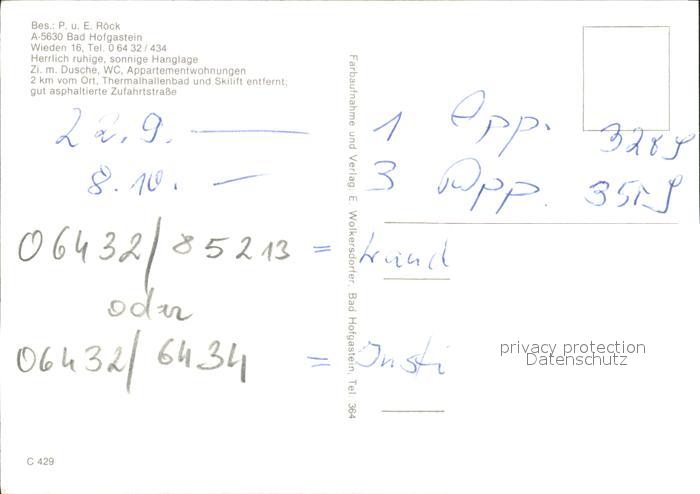 Bes.: P. u. E. Röck
A-5630 Bad Hofgastein
Wieden 16, Tel. 0 64 32 / 434
Herrlich ruhige, sonnige Hanglage
Zi. m. Dusche, WC, Appartementwohnungen
2 km vom Ort, Thermalhallenbad und Skilift entfernt,
gut asphaltierte Zufahrtstraße
22.9. — 1 App. 328 S
8.10. — 3 App. 351 S
06432/85213 =
oder
06432/6434 =
Farbaufnahme und Verlag: E. Wolkersdorfer, Bad Hofgastein, Tel. 364
privacy protection
Datenschutz
C 429